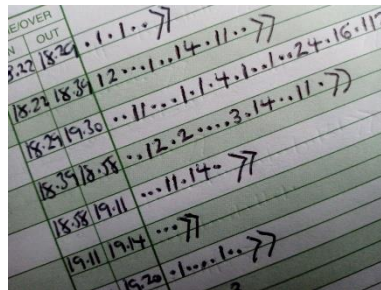 E/OVER
N OUT
8.22 18.29 . 1 . 1 . . >>
18.22 18.39 12 . . . 1 . . 14 . 11 . . >>
18.29 19.30 . . 11 . . . 1 . 1 . 4 . 1 . . 1 . . 24 . 16 . 11
18.39 18.58 . . 12 . 2 . . . . 3 . 14 . . 11 . >>
18.58 19.11 . . . 11 . 14 . >>
19.11 19.14 . . . >>
19.20 . 1 . . . . 1 . . >>